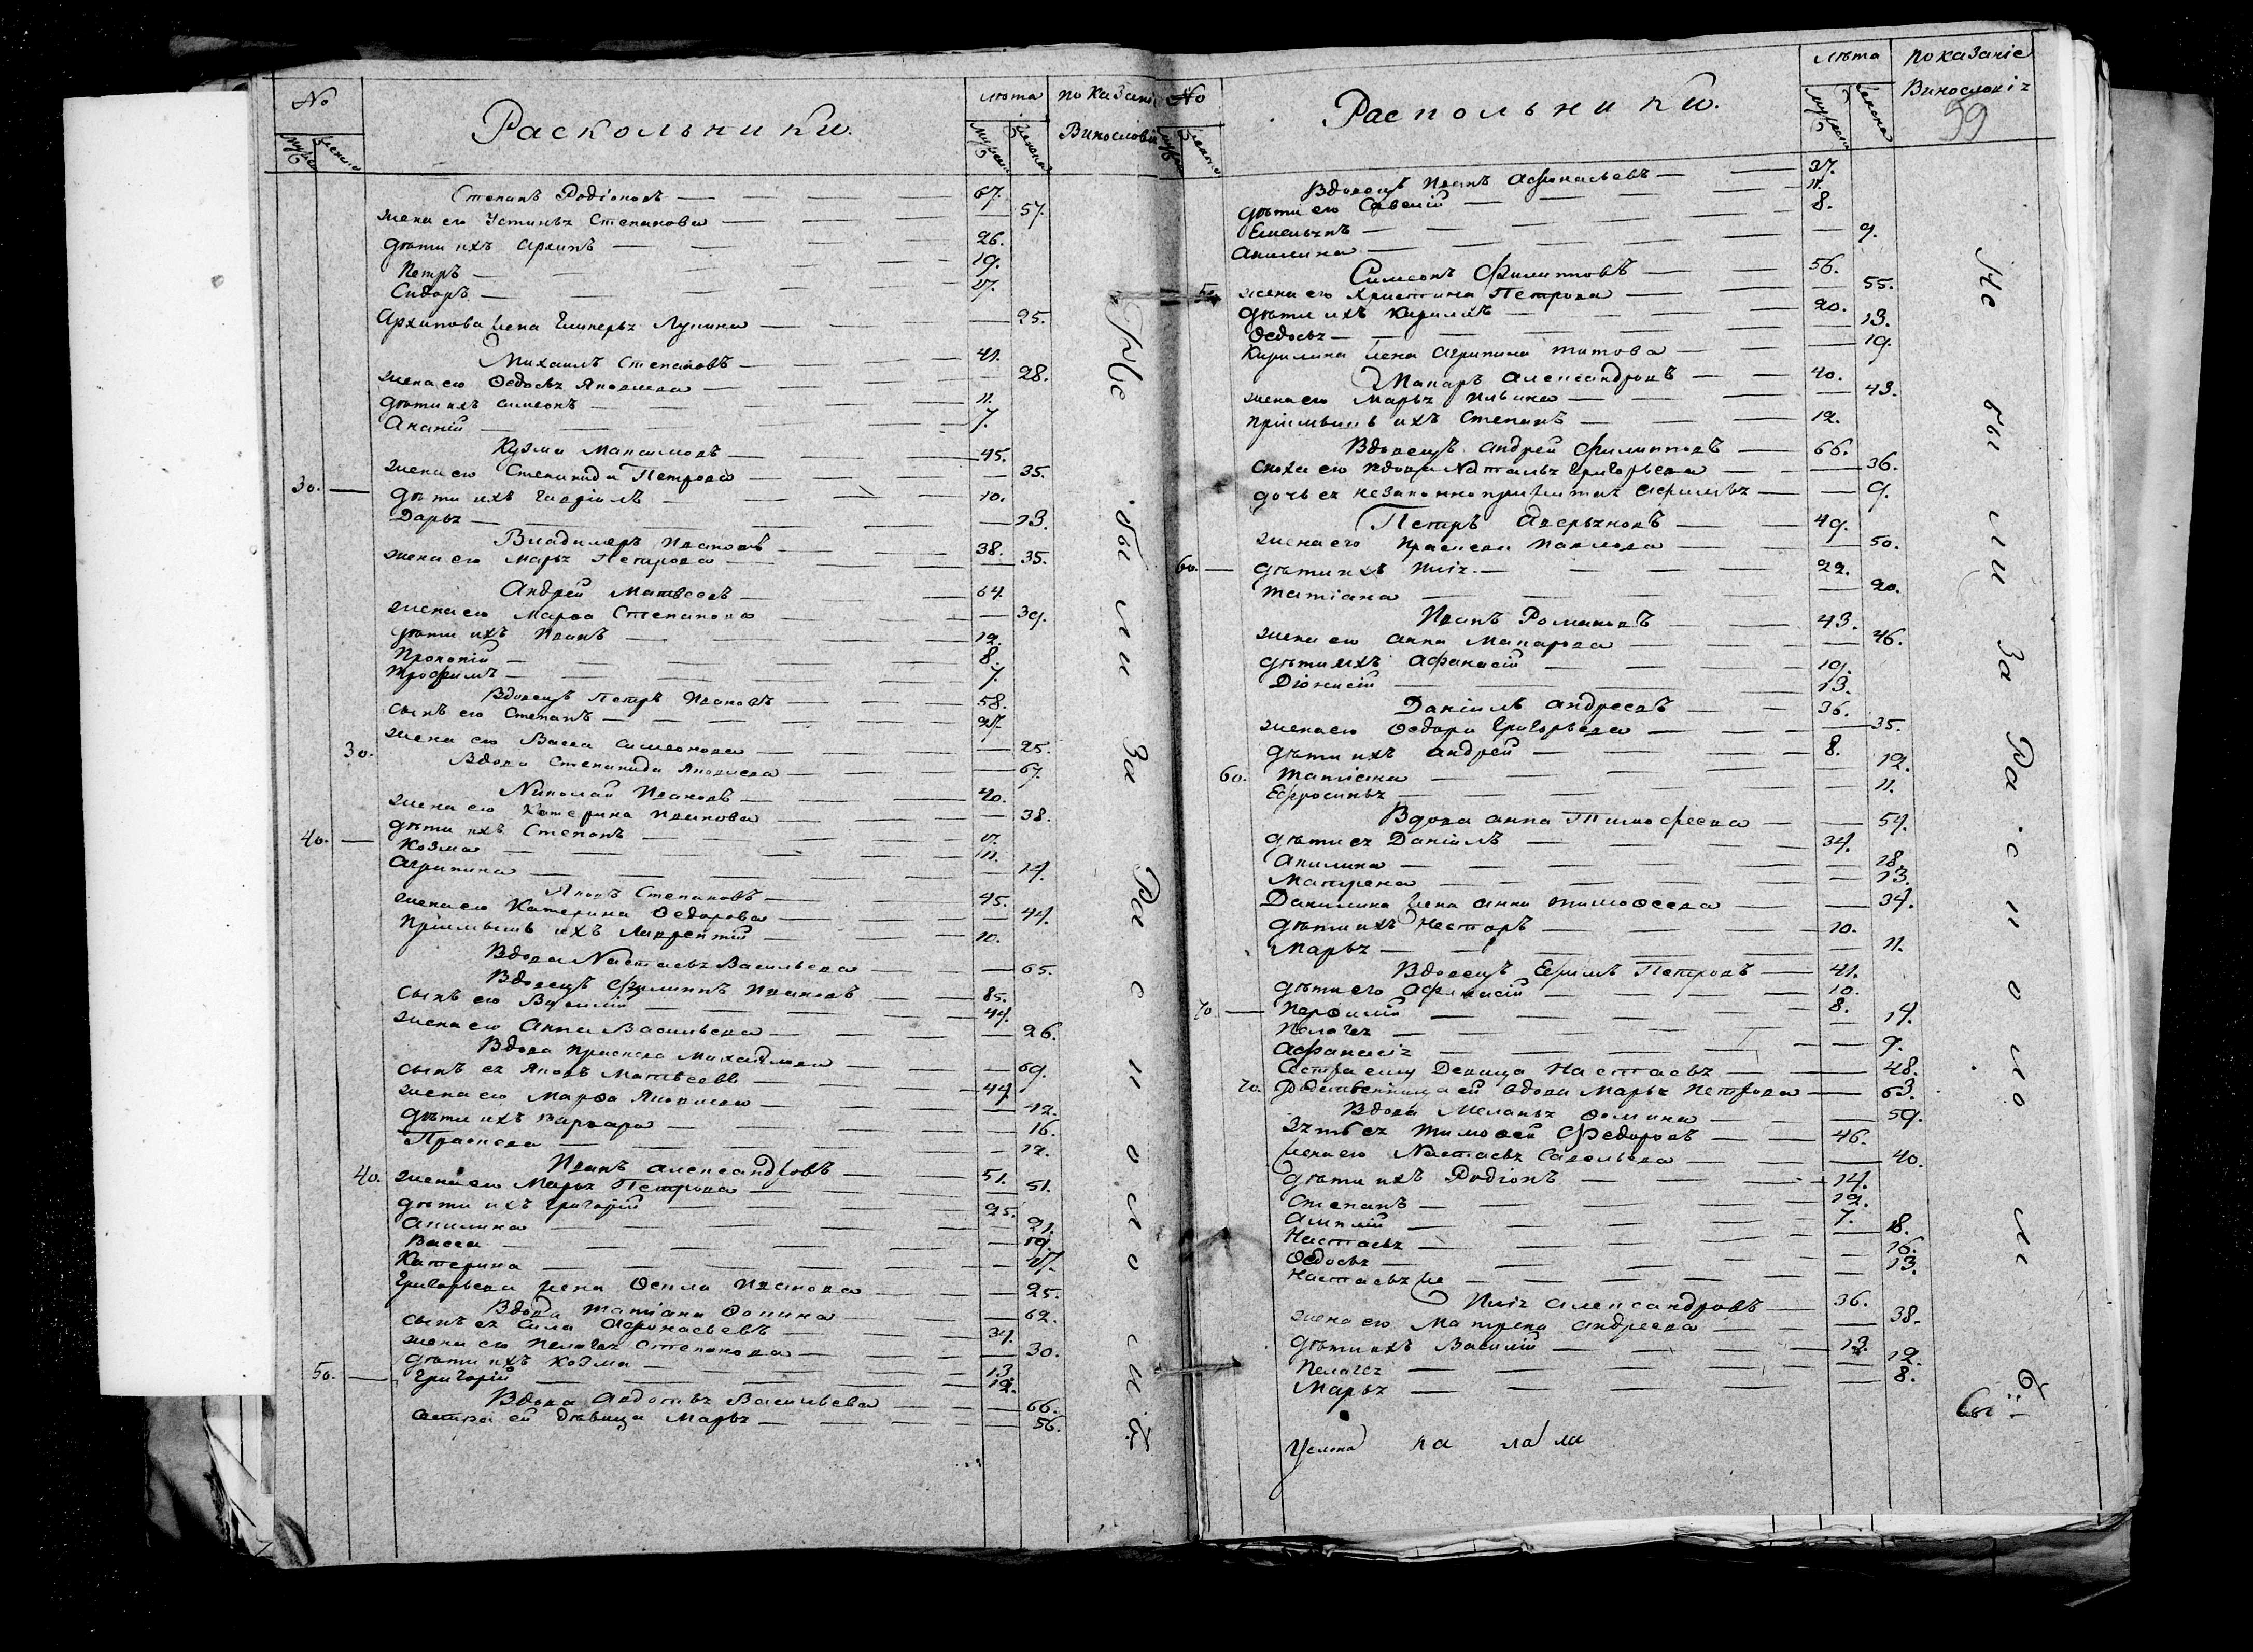 №
мужеск женска
Раскольники.
лѣта
мужеск женска
показаніе
Винословія
Степанъ Родіоновъ — 67.
жена его Устинья Степанова — 57.
дѣти ихъ Архипъ — 26.
Петръ — 19.
Сидоръ — 17.
Архипова жена Гликерья Лупина — 25.
Михаилъ Степановъ — 41.
жена его Ѳедосья Яковлева — 28.
дѣти ихъ Симеонъ — 11.
Ананій — 7.
Кузма Максимовъ — 45.
жена его Степанида Петрова — 35.
30. — дѣти ихъ Гавріилъ — 10.
Дарья — 13.
Владимеръ Ивановъ — 38.
жена его Марья Петрова — 35.
Андрей Матвеевъ — 64.
жена его Марѳа Степанова — 39.
дѣти ихъ Иванъ — 12.
Прокопій — 8.
Трофимъ — 7.
Вдовецъ Петръ Ивановъ — 58.
сынъ его Степанъ — 27.
жена его Васса Симеонова — 25.
30. Вдова Степанида Яковлева — 67.
Николай Ивановъ — 40.
жена его Катерина Иванова — 38.
40. — дѣти ихъ Степанъ — 17.
Козма — 11.
Агрипина — 14.
Яковъ Степановъ — 45.
жена его Катерина Ѳедорова — 44.
пріимышъ ихъ Лаврентій — 10.
Вдова Настасья Васильева — 65.
Вдовецъ Филиппъ Ивановъ — 85.
сынъ его Василій — 44.
жена его Анна Васильева — 26.
Вдова Прасковя Михайлова — 69.
сынъ ея Яковъ Матвеевъ — 44.
жена его Марѳа Яковлева — 42.
дѣти ихъ Варвара — 16.
Прасковa — 12.
Иванъ Александровъ — 51.
40. жена его Марья Петрова — 51.
дѣти ихъ Григорій — 25.
Акилина — 21.
Васса — 19.
Катерина — 17.
Григорьева жена Ѳекла Иванова — 25.
Вдова Татіана Ѳомина — 62.
сынъ ея Сила Афонасьевъ — 34.
жена его Пелагея Степанова — 30.
дѣти ихъ Козма — 13.
50. — Григорій — 12.
Вдова Авдотья Васильева — 66.
сестра ей дѣвица Марья — 56.
Не были За Расколомъ
№
Раскольники.
лѣта
мужеск женска
показаніе
Винословія
59
Вдовецъ Иванъ Афонасьевъ — 37.
дѣти его Савелій — 11.
Емельянъ — 8.
Акилина — 9.
Симеонъ Филипповъ — 56.
жена его Христина Петрова — 55.
дѣти ихъ Кирилъ — 20.
Ѳедосья — 13.
Кирилина жена Агрипина Титова — 19.
Макаръ Александровъ — 40.
жена его Марья Ильина — 43.
пріимышъ ихъ Степанъ — 12.
Вдовецъ Андрей Филипповъ — 66.
сноха его вдова Наталья Григорьева — 36.
дочь ея незаконноприжитая Афимья — 9.
Петръ Аверьяновъ — 49.
жена его Прасковa Павлова — 50.
60. — дѣти ихъ Илія — 22.
Татіана — 20.
Иванъ Романовъ — 43.
жена его Анна Макарова — 46.
дѣти ихъ Афанасій — 19.
Діонисій — 13.
Даніилъ Андреевъ — 36.
жена его Ѳедора Григорьева — 35.
дѣти ихъ Андрей — 8.
60. Татіана — 12.
Ефросинья — 11.
Вдова Анна Тимофеева — 54.
дѣти ея Даніилъ — 34.
Акилина — 18.
Матрена — 13.
Данилина жена Анна Тимоѳеева — 34.
дѣти ихъ Несторъ — 10.
Марья — 11.
Вдовецъ Ефимъ Петровъ — 41.
дѣти его Афанасій — 10.
70 — Парѳилій — 8.
Пелагея — 14.
Афанасія — 9.
Сестра ему Девица Настасья — 48.
70. Родственница ей вдова Марья Петрова — 63.
Вдова Меланья Ѳомина — 59.
Зять ея Тимоѳей Федоровъ — 46.
жена его Настасья Савельева — 40.
дѣти ихъ Родіонъ — 14.
Степанъ — 12.
7.
Настасья — 18.
Ѳедосья — 16.
Настасья же — 13.
Илія Александровъ — 36.
жена его Матрена Андреева — 38.
дѣти ихъ Василій — 13.
Пелагея — 12.
Марья — 8.
Не были За Расколомъ